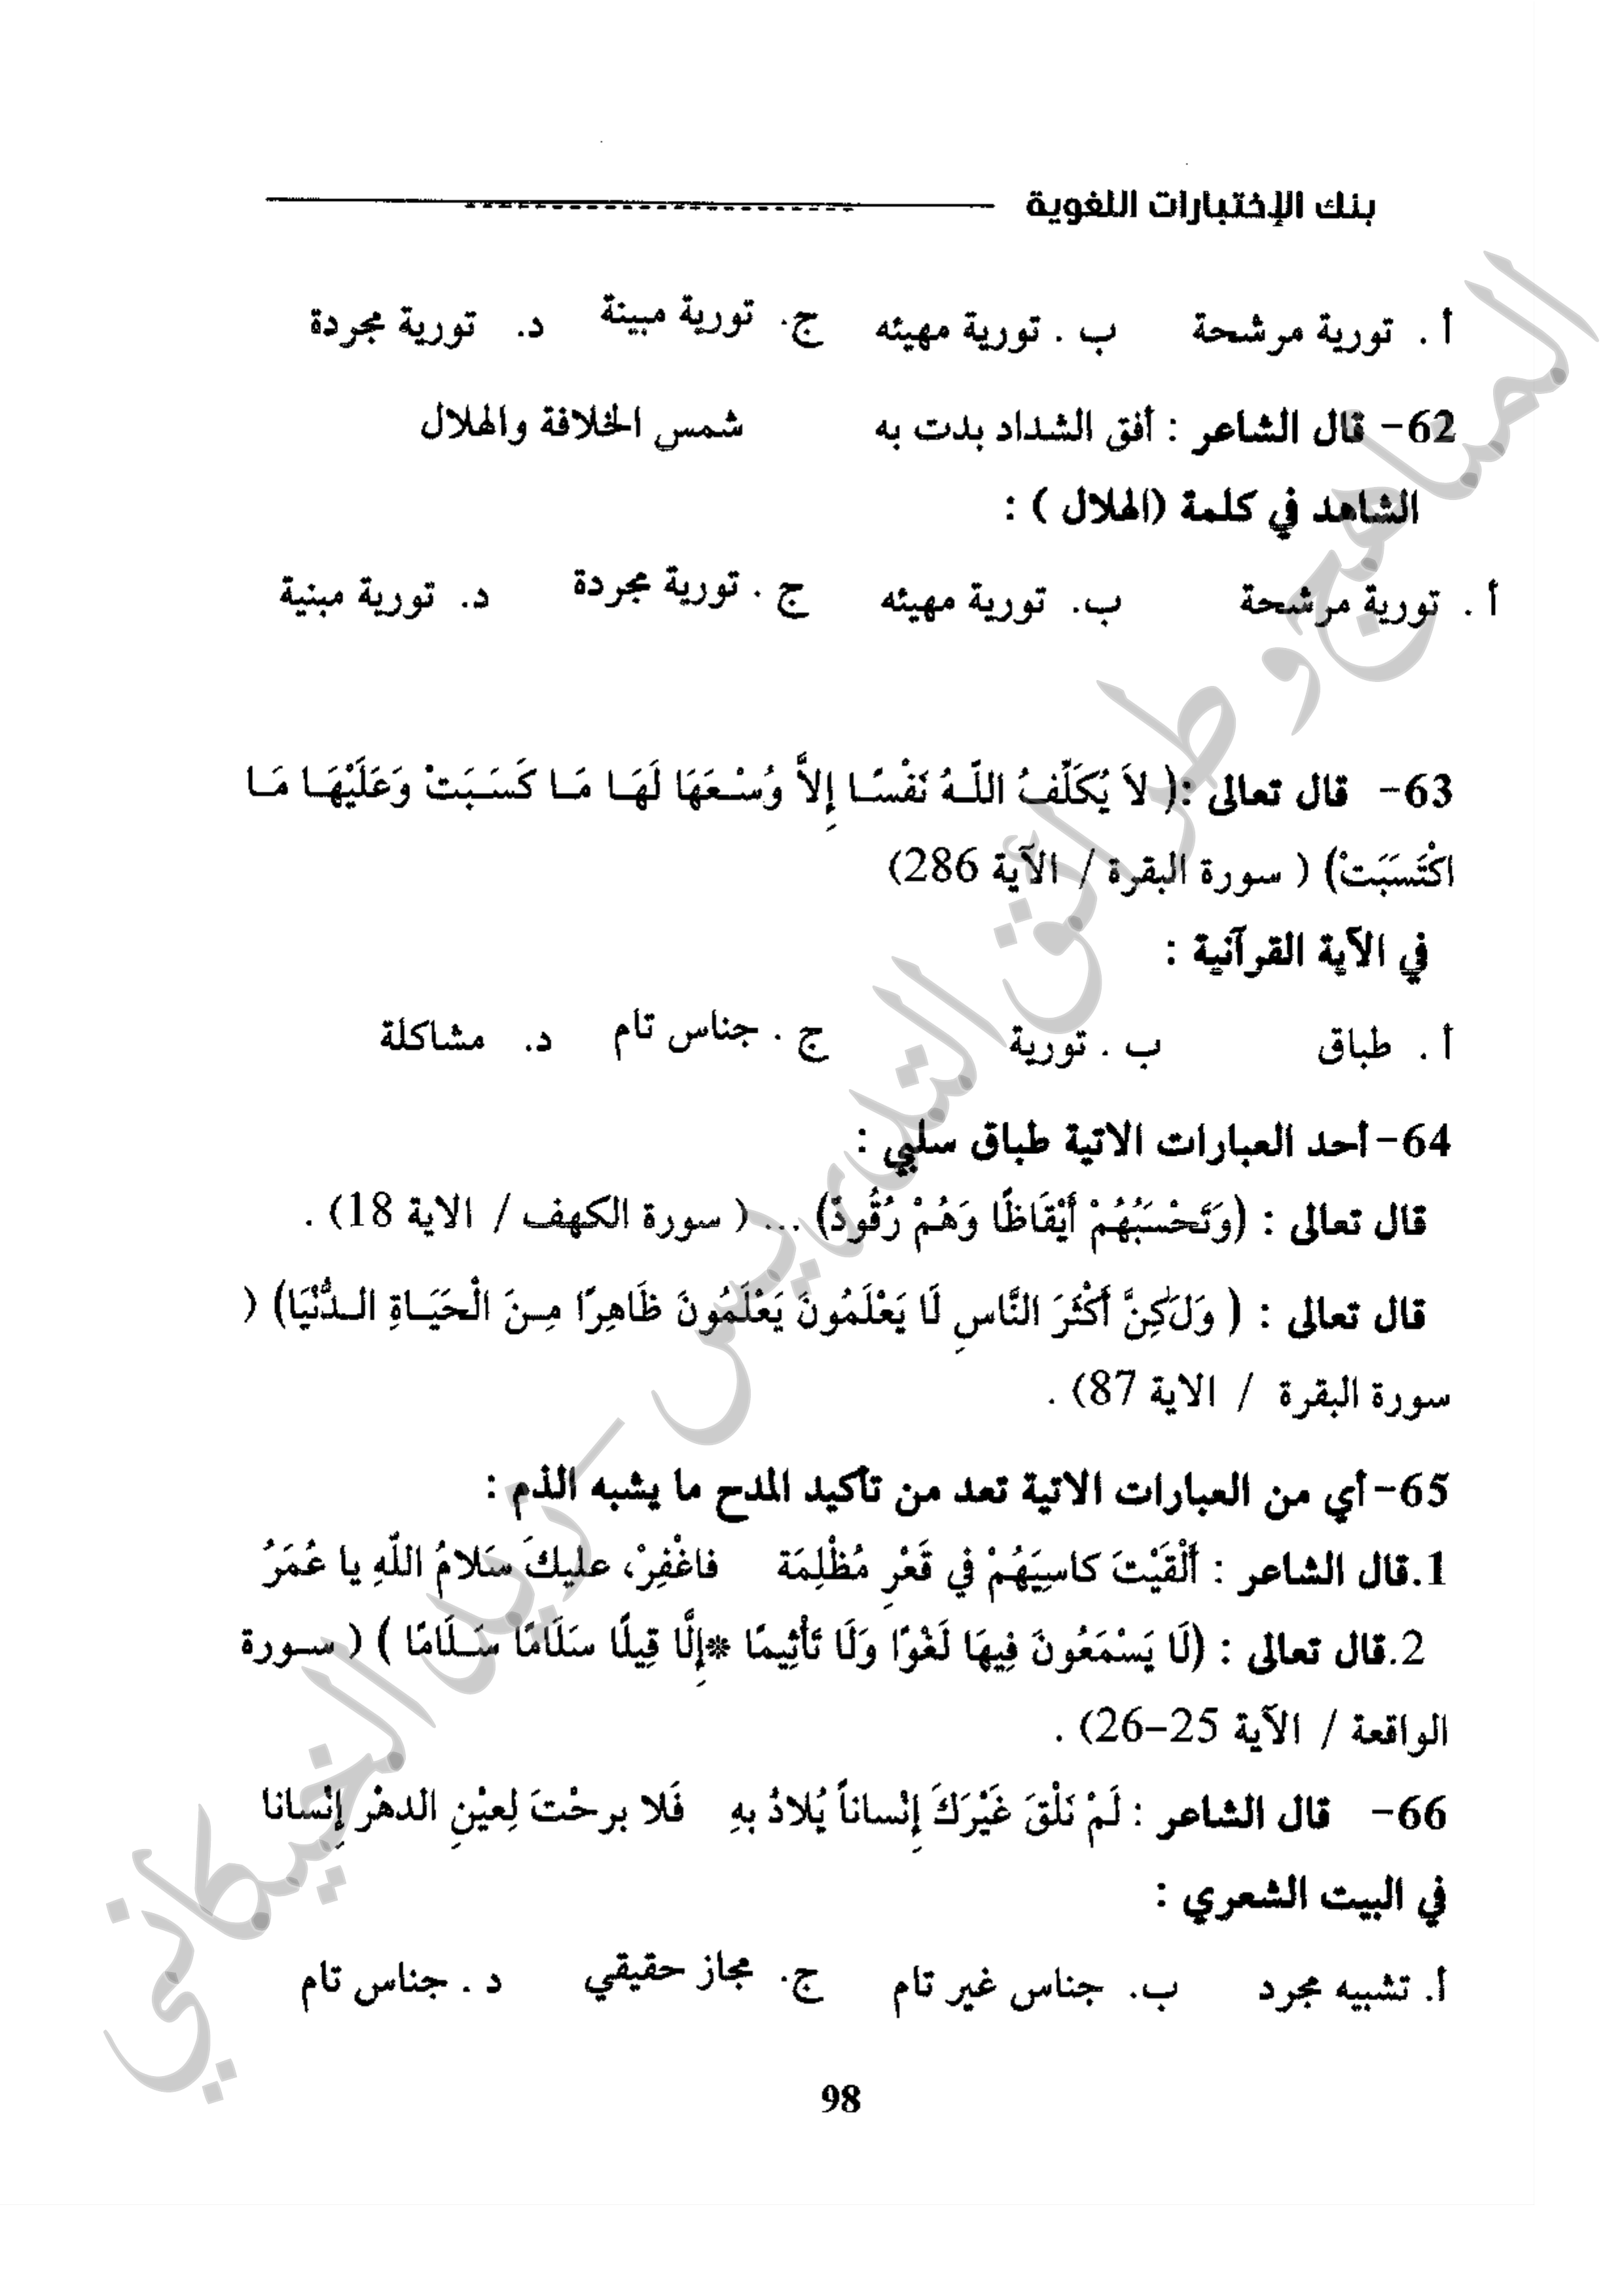 بنك الإختبارات اللغوية
أ . تورية مرشحة ب . تورية مهيئه ج. تورية مبينة د. تورية مجردة
62- قال الشاعر : أفق الشداد بدت به شمس الخلافة والهلال
الشاهد في كلمة (الهلال ) :
أ . تورية مرشحة ب. تورية مهيئه ج . تورية مجردة د. تورية مبنية
63- قال تعالى :( لاَ يُكَلِّفُ اللّهُ نَفْسًا إِلاَّ وُسْعَهَا لَهَا مَا كَسَبَتْ وَعَلَيْهَا مَا
اكْتَسَبَتْ) ( سورة البقرة / الآية 286)
في الآية القرآنية :
أ . طباق ب . تورية ج . جناس تام د. مشاكلة
64- أحد العبارات الاتية طباق سلبي :
قال تعالى : (وَتَحْسَبُهُمْ أَيْقَاظًا وَهُمْ رُقُودٌ) ... ( سورة الكهف / الاية 18) .
قال تعالى : ( وَلَٰكِنَّ أَكْثَرَ النَّاسِ لَا يَعْلَمُونَ يَعْلَمُونَ ظَاهِرًا مِنَ الْحَيَاةِ الدُّنْيَا) (
سورة البقرة / الاية 87) .
65- أي من العبارات الاتية تعد من تأكيد المدح ما يشبه الذم :
1.قال الشاعر : أَلْقَيْتَ كاسِيَهُمْ في قَعْرِ مُظْلِمَة فاغْفِرْ، عليكَ سَلامُ اللّهِ يا عُمَرُ
2.قال تعالى : (لَا يَسْمَعُونَ فِيهَا لَغْوًا وَلَا تَأْثِيمًا *إِلَّا قِيلًا سَلَامًا سَلَامًا ) ( سورة
الواقعة / الآية 25-26) .
66- قال الشاعر : لَمْ نَلْقَ غَيْرَكَ إِنْساناً يُلادُ بهِ فَلا برحْتَ لِعيْنِ الدهْر إِنْسانا
في البيت الشعري :
أ. تشبيه مجرد ب. جناس غير تام ج. مجاز حقيقي د . جناس تام
98
المناهج وطرائق التدريس – زيد الخيكاني